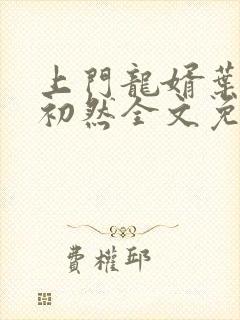 上門龍婿葉
初然全文免
費權邱